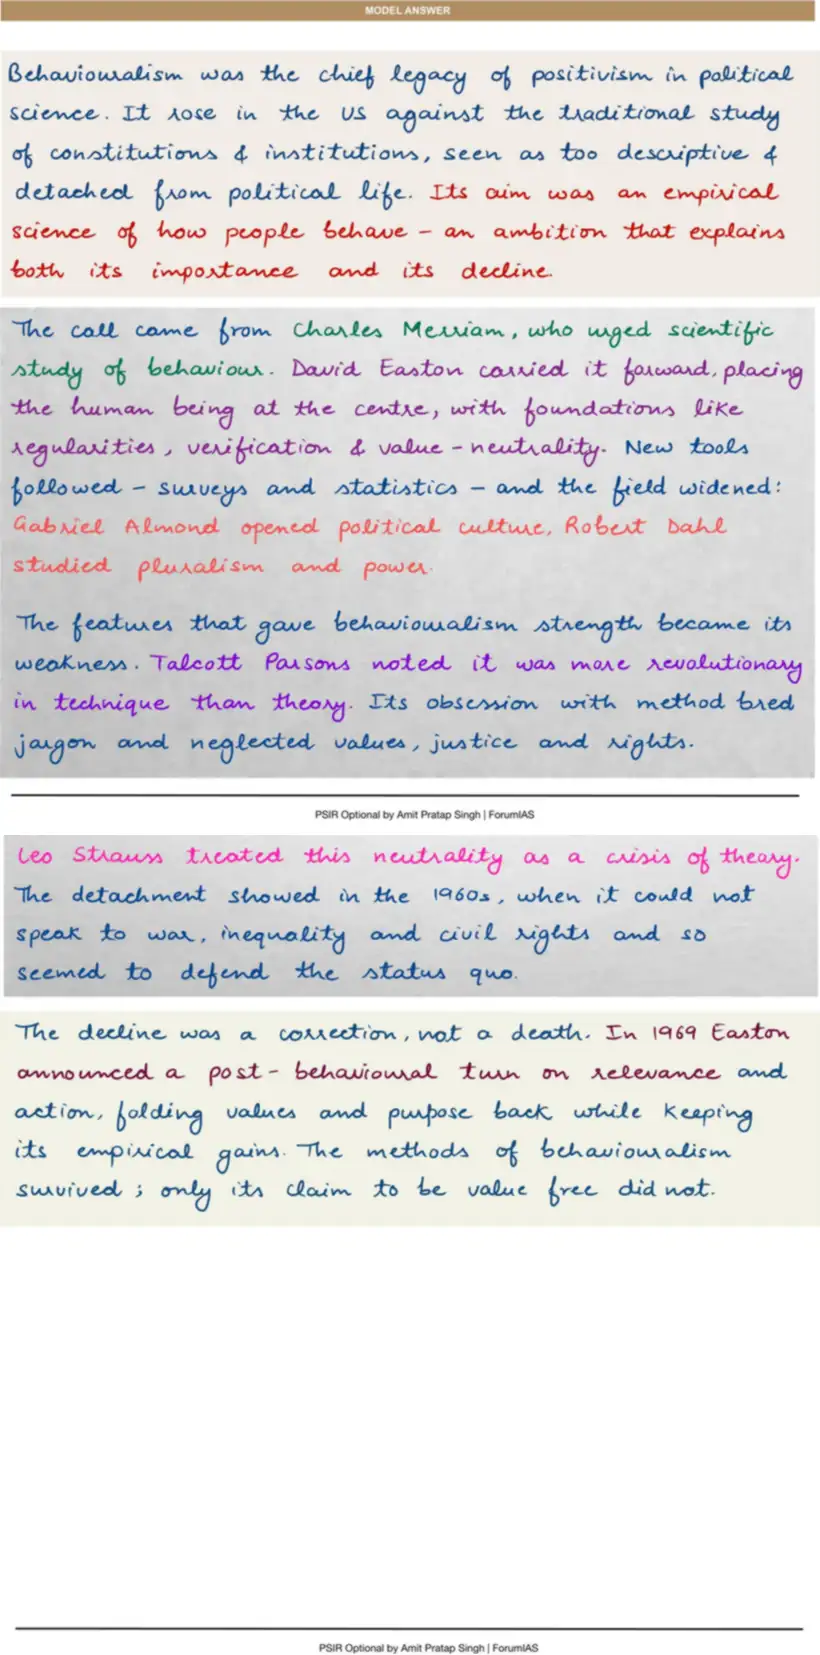 MODEL ANSWER
Behaviouralism was the chief legacy of positivism in political
science. It rose in the US against the traditional study
of constitutions & institutions, seen as too descriptive &
detached from political life. Its aim was an empirical
science of how people behave – an ambition that explains
both its importance and its decline.
The call came from Charles Merriam, who urged scientific
study of behaviour. David Easton carried it forward, placing
the human being at the centre, with foundations like
regularities, verification & value-neutrality. New tools
followed – surveys and statistics – and the field widened:
Gabriel Almond opened political culture, Robert Dahl
studied pluralism and power.
The features that gave behaviouralism strength became its
weakness. Talcott Parsons noted it was more revolutionary
in technique than theory. Its obsession with method bred
jargon and neglected values, justice and rights.
PSIR Optional by Amit Pratap Singh | ForumIAS
Leo Strauss treated this neutrality as a crisis of theory.
The detachment showed in the 1960s, when it could not
speak to war, inequality and civil rights and so
seemed to defend the status quo.
The decline was a correction, not a death. In 1969 Easton
announced a post-behavioural turn on relevance and
action, folding values and purpose back while keeping
its empirical gains. The methods of behaviouralism
survived; only its claim to be value free did not.
PSIR Optional by Amit Pratap Singh | ForumIAS